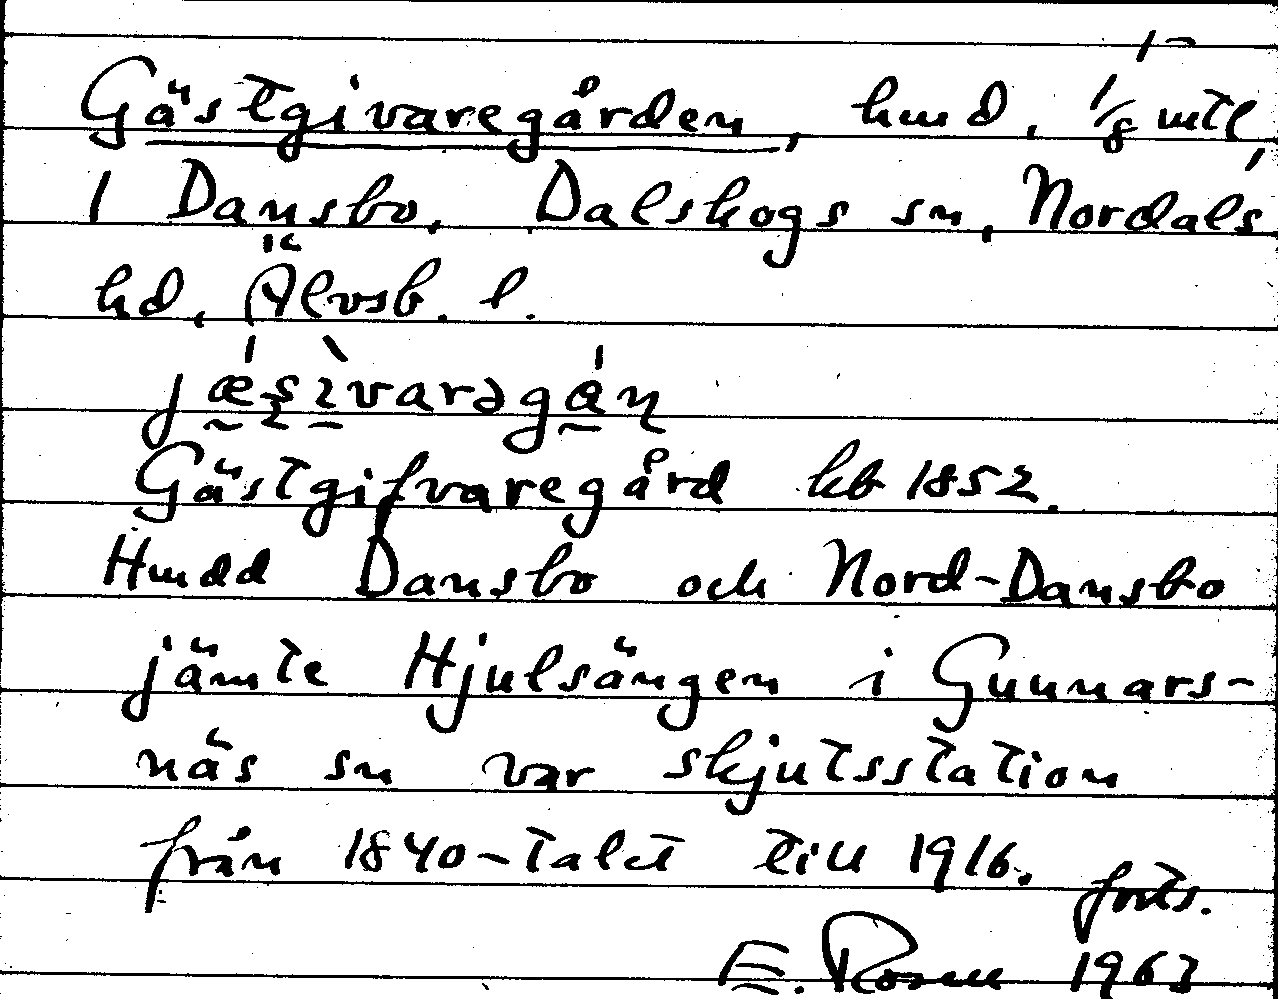 Gästgivaregården, hmd, 1/8 mtl
1 Dansbo, Dalskogs sn, Nordals
hd, Älvsb. l.
Gästgifvaregård kb 1852.
Hmdd Dansbo och Nord-Dansbo
jämte Hjulsängen i Gunnars-
näs sn var skjutsstation
från 1840-talet till 1916. forts.
E. Rosell 1963